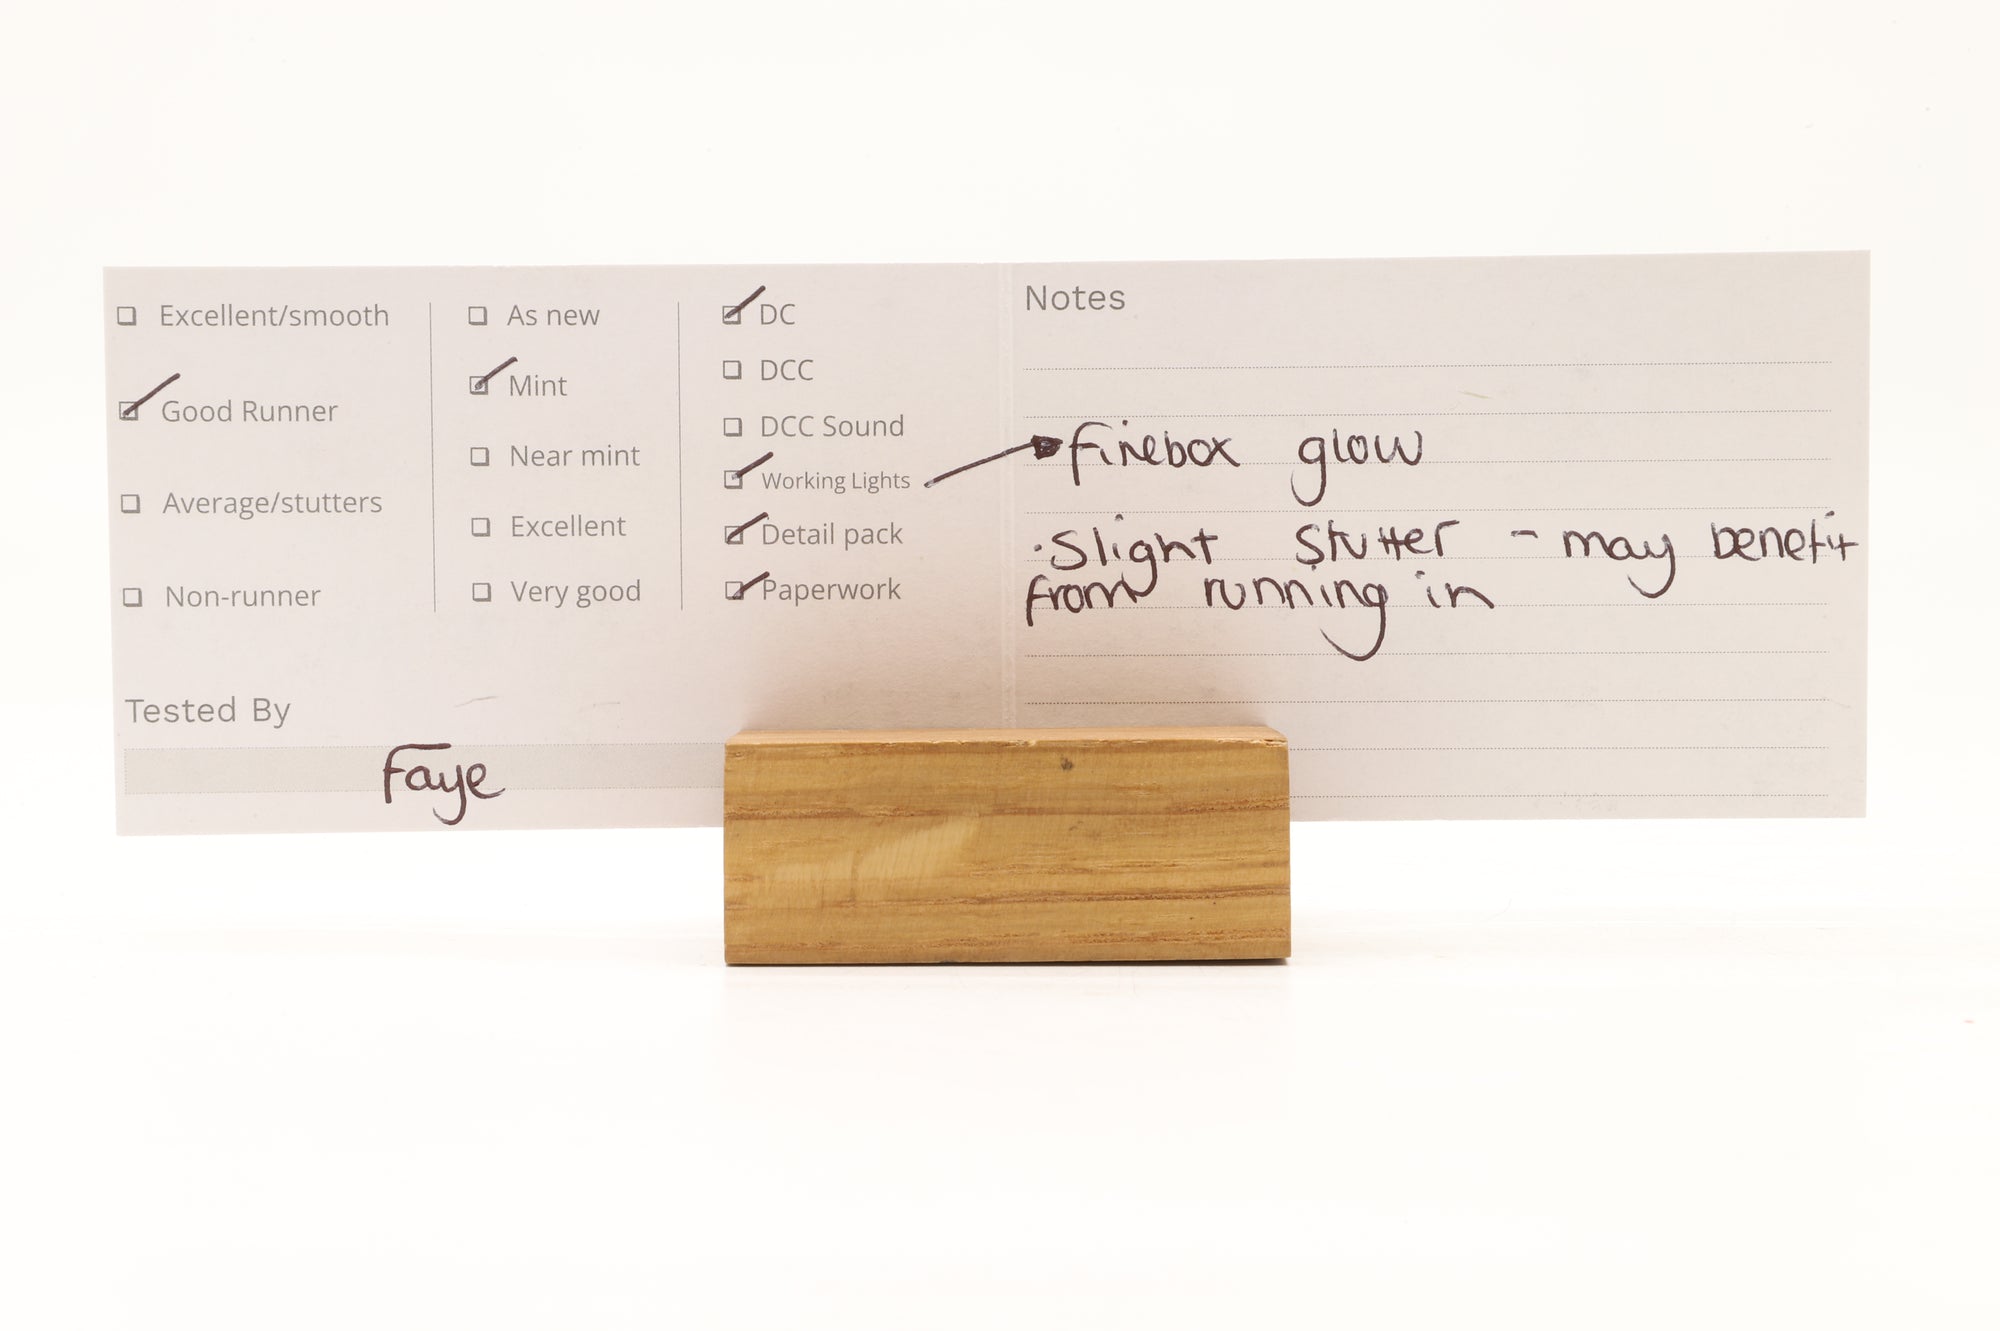 Excellent/smooth
Good Runner
Average/stutters
Non-runner
As new
Mint
Near mint
Excellent
Very good
DC
DCC
DCC Sound
Working Lights
Detail pack
Paperwork
Tested By
Faye
Notes
firebox glow
·Slight Stutter - may benefit
from running in